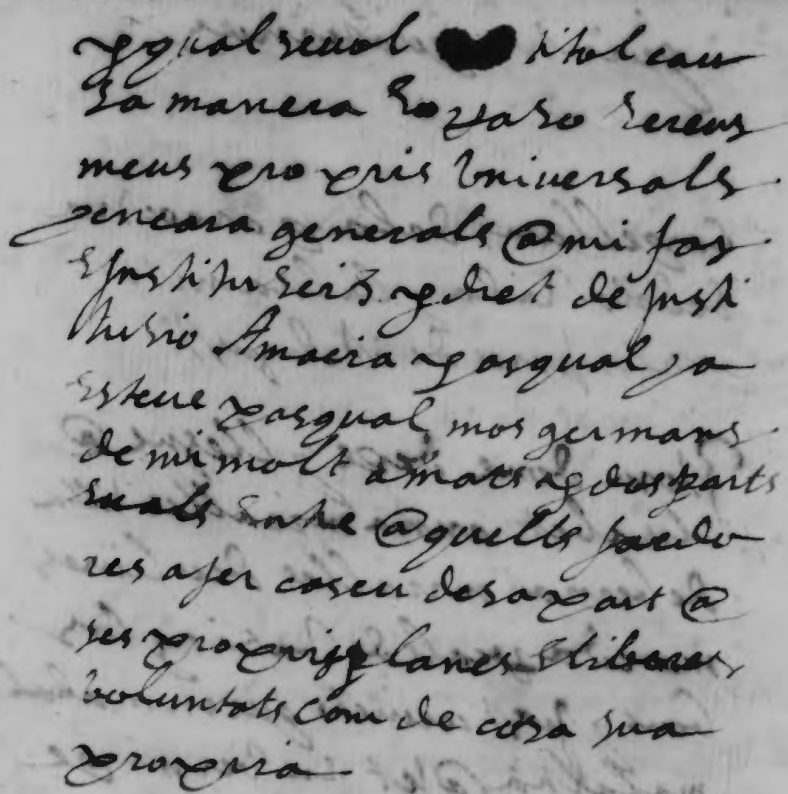 per qualsevol titol cau
sa manera so raho hereus
meus propris universals
y encara generals a mi fas
e institueis per dret de insti
tusio A Maria pasqual ya
esteve pasqual mos germans
de mi molt amats per dos parts
yguals entre aquells fahedo
res afer cascu desa part a
ses propries planes e liberes
voluntats com de cosa sua
propria